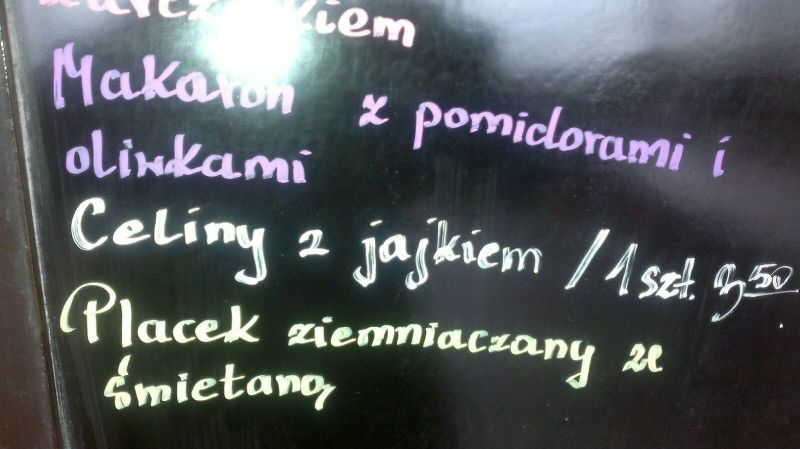 Makaron z pomidorami i
oliwkami
Celiny z jajkiem / 1 szt. 3,50
Placek ziemniaczany ze
śmietaną